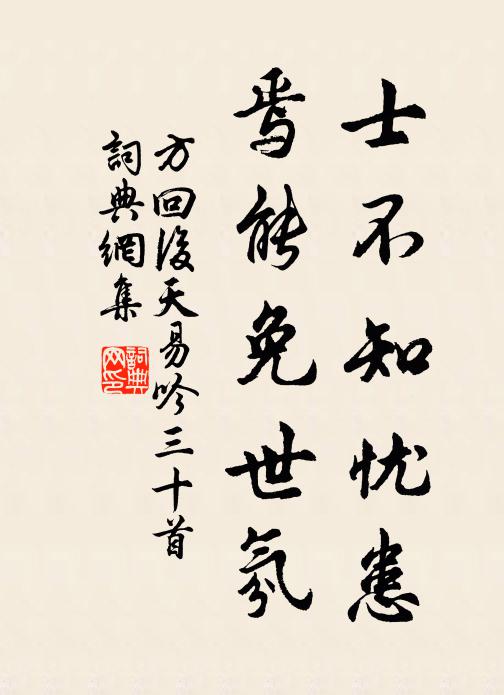 士不知忧患
焉能免世氛
方回後天易吟三十首
詞典網集
詞典网印